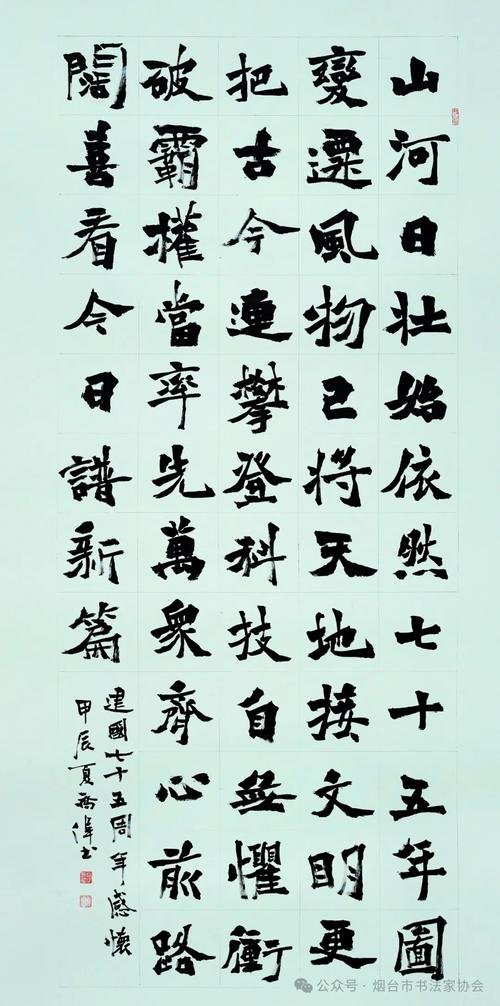 山河日壯始依然七十五年圖
變遷風物已將天地接文明更
把古今連攀登科技自無懼衝
破霸權當率先萬眾齊心前路
闊喜看今日譜新篇
建國七十五周年感懷
甲辰夏偉书
公众号·烟台市书法家协会